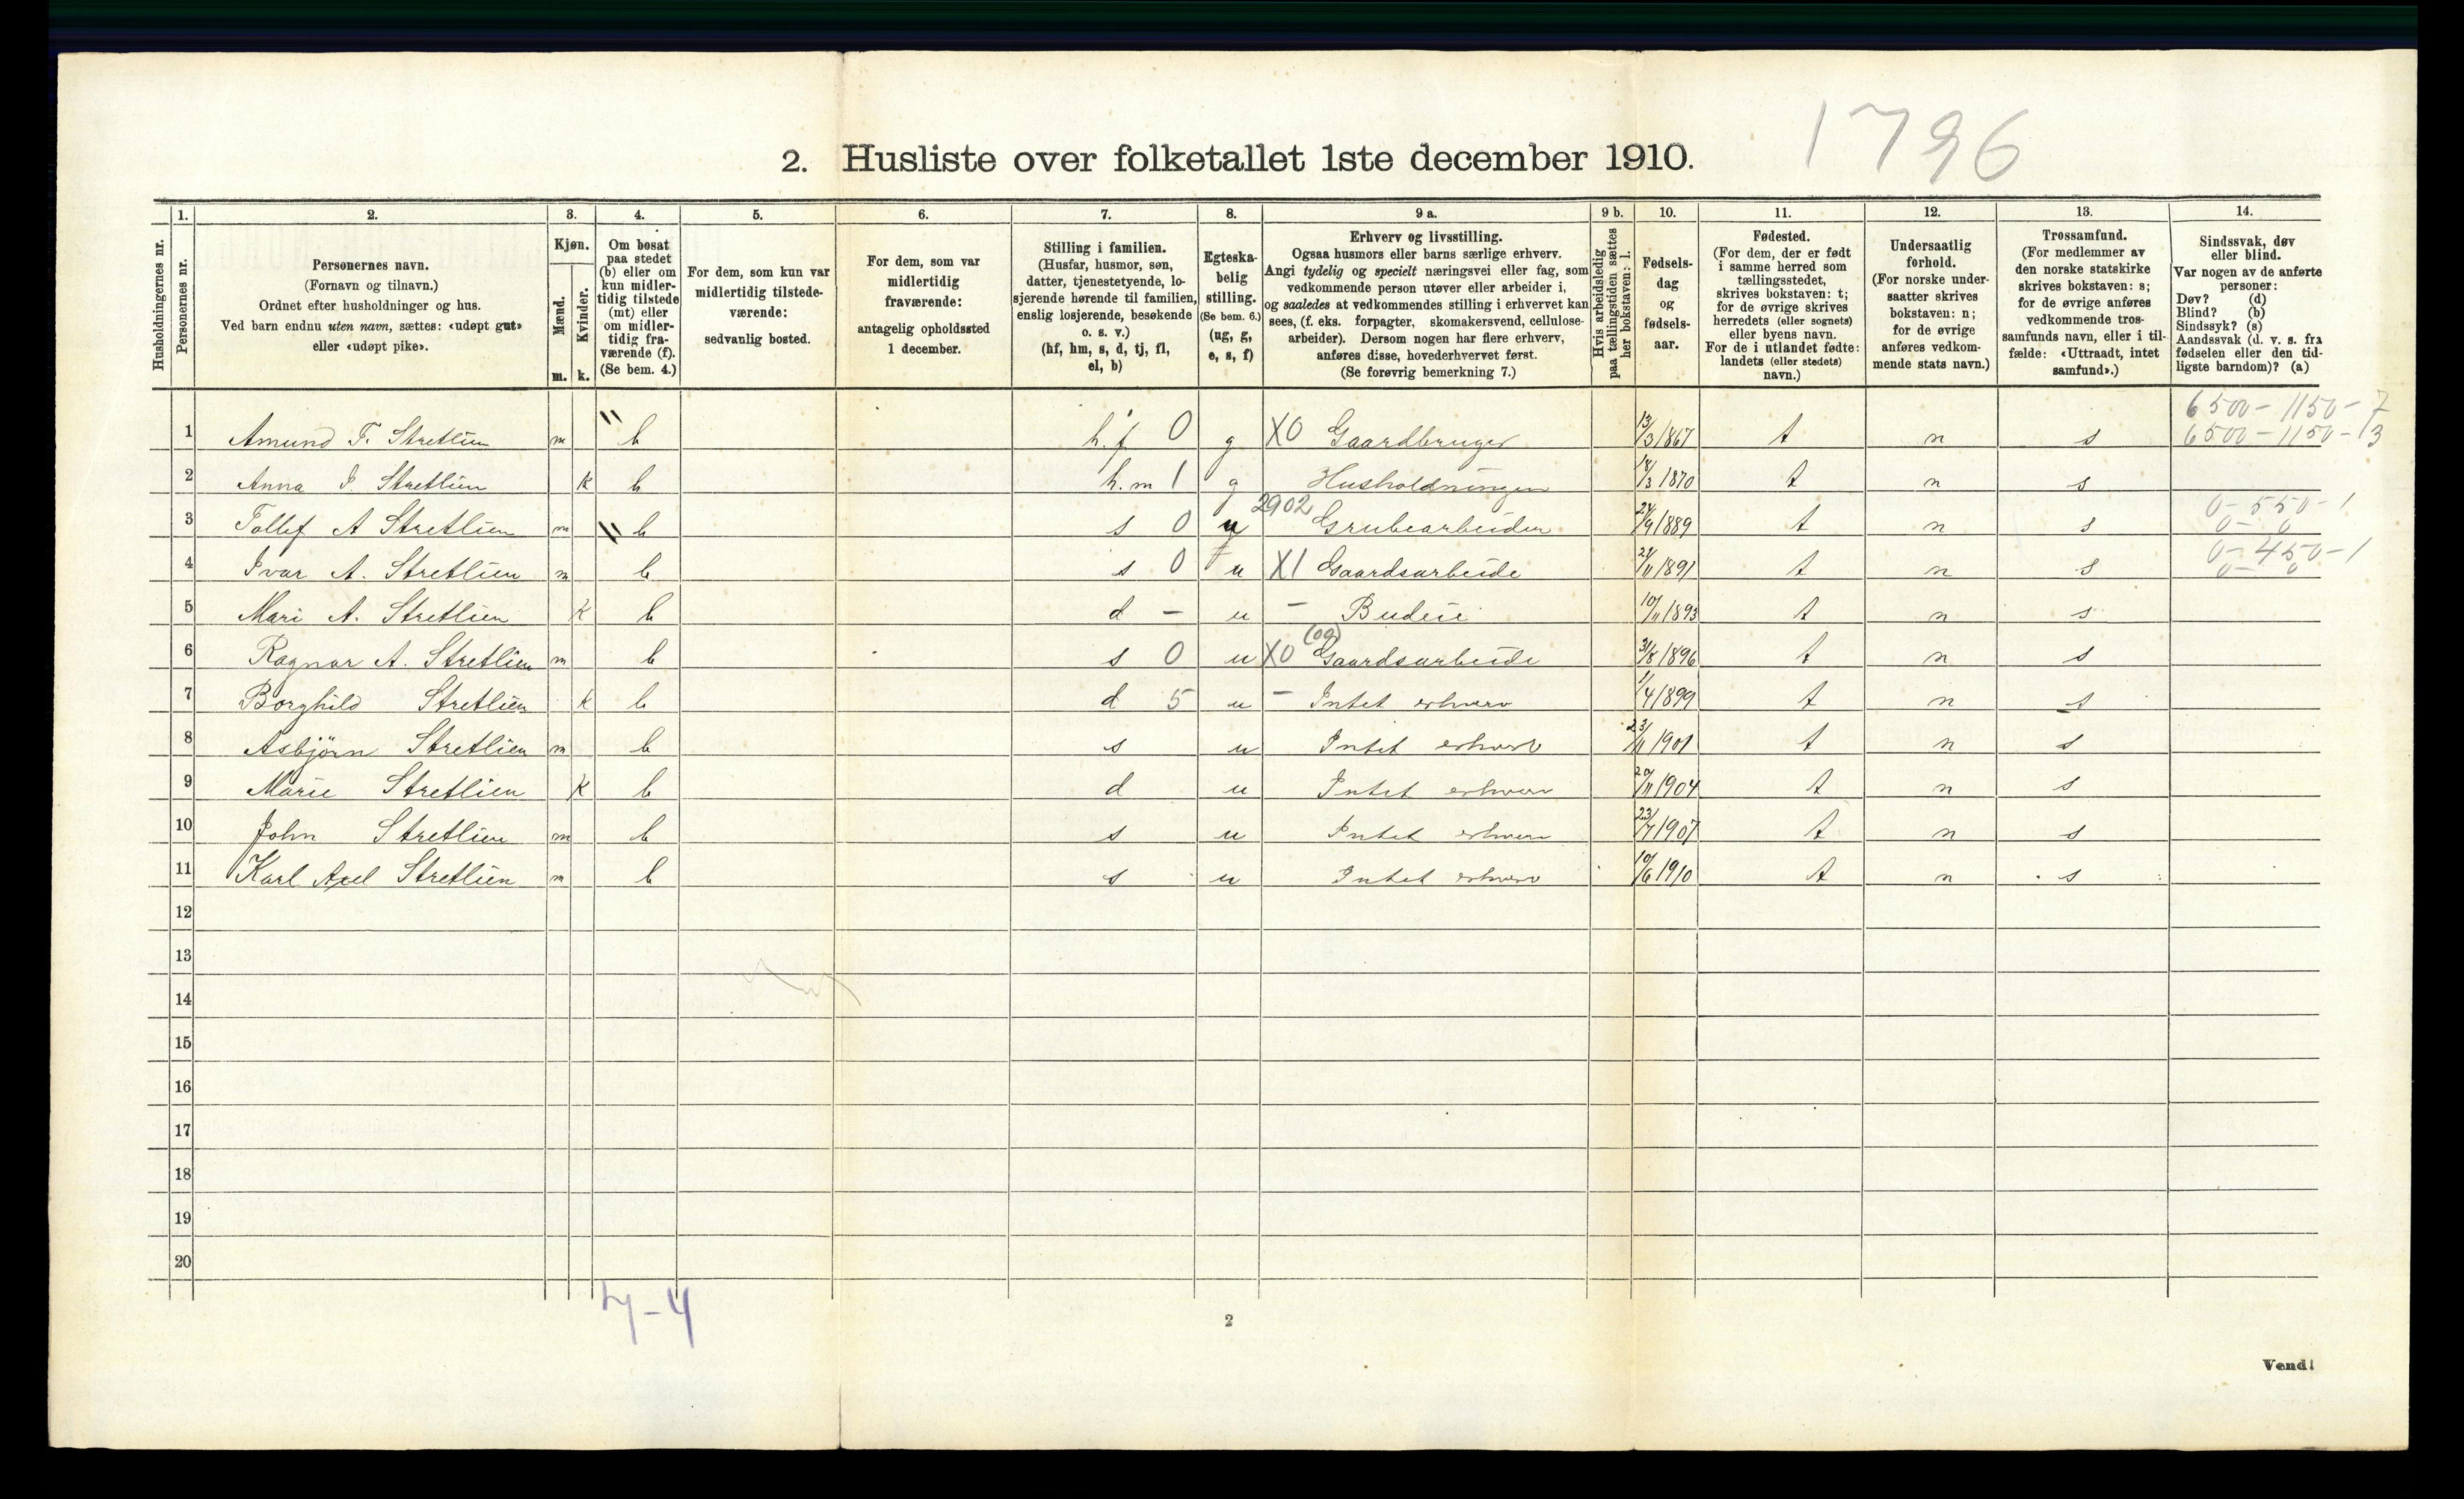 1796
2. Husliste over folketallet 1ste december 1910.
Husholdningernes nr.
1. Personernes nr.
2. Personernes navn.
(Fornavn og tilnavn.)
Ordnet efter husholdninger og hus.
Ved barn endnu uten navn, sættes: «udøpt gut»
eller «udøpt pike».
3. Kjøn.
Mænd. m.
Kvinder. k.
4. Om bosat
paa stedet
(b) eller om
kun midler-
tidig tilstede
(mt) eller
om midler-
tidig fra-
værende (f).
(Se bem. 4.)
5. For dem, som kun var
midlertidig tilstede-
værende:
sedvanlig bosted.
6. For dem, som var
midlertidig
fraværende:
antagelig opholdssted
1 december.
7. Stilling i familien.
(Husfar, husmor, søn,
datter, tjenestetyende, lo-
sjerende hørende til familien,
enslig losjerende, besøkende
o. s. v.)
(hf, hm, s, d, tj, fl,
el, b)
8. Egteska-
belig
stilling.
(Se bem. 6.)
(ug, g,
e, s, f)
9 a. Erhverv og livsstilling.
Ogsaa husmors eller barns særlige erhverv.
Angi tydelig og specielt næringsvei eller fag, som
vedkommende person utøver eller arbeider i,
og saaledes at vedkommendes stilling i erhvervet kan
sees, (f. eks. forpagter, skomakersvend, cellulose-
arbeider). Dersom nogen har flere erhverv,
anføres disse, hovederhvervet først.
(Se forøvrig bemerkning 7.)
9 b. Hvis arbeidsledig
paa tællingstiden sættes
her bokstaven: l.
10. Fødsels-
dag
og
fødsels-
aar.
11. Fødested.
(For dem, der er født
i samme herred som
tællingsstedet,
skrives bokstaven: t;
for de øvrige skrives
herredets (eller sognets)
eller byens navn.
For de i utlandet fødte:
landets (eller stedets)
navn.)
12. Undersaatlig
forhold.
(For norske under-
saatter skrives
bokstaven: n;
for de øvrige
anføres vedkom-
mende stats navn.)
13. Trossamfund.
(For medlemmer av
den norske statskirke
skrives bokstaven: s;
for de øvrige anføres
vedkommende tros-
samfunds navn, eller i til-
fælde: «Uttraadt, intet
samfund».)
14. Sindssvak, døv
eller blind.
Var nogen av de anførte
personer:
Døv? (d)
Blind? (b)
Sindssyk? (s)
Aandssvak (d. v. s. fra
fødselen eller den tid-
ligste barndom)? (a)
1 Amund T. Stretlien m b h.f 0 g X0 Gaardbruger 13/3 1867 t n s 6500-1150-7 6500-1150-13
2 Anna I. Stretlien k b h.m 1 g Husholdningen 18/3 1870 t n s
3 Tollef A Stretlien m b s 0 2902 Grubearbeider 24/9 1889 t n s 0-550-1 0- 0
4 Ivar A. Stretlien m b s 0 u X1 Gaardsarbeide 21/11 1891 t n s 0-450-1 0- 0
5 Mari A. Stretlien k b d - u - Budeie 10/11 1893 t n s
6 Ragnar A. Stretlien m b s 0 u X0 (og) Gaardsarbeide 31/8 1896 t n s
7 Borghild Stretlien k b d 5 u - Intet erhverv 1/4 1899 t n s
8 Asbjörn Stretlien m b s u Intet erhverv 23/11 1901 t n s
9 Marie Stretlien k b d u Intet erhverv 20/11 1904 t n s
10 John Stretlien m b s u Intet erhverv 23/7 1907 t n s
11 Karl Axel Stretlien m b s u Intet erhverv 10/6 1910 t n s
12
13
14
15
16
17
18
19
20
7-4
2
Vend!